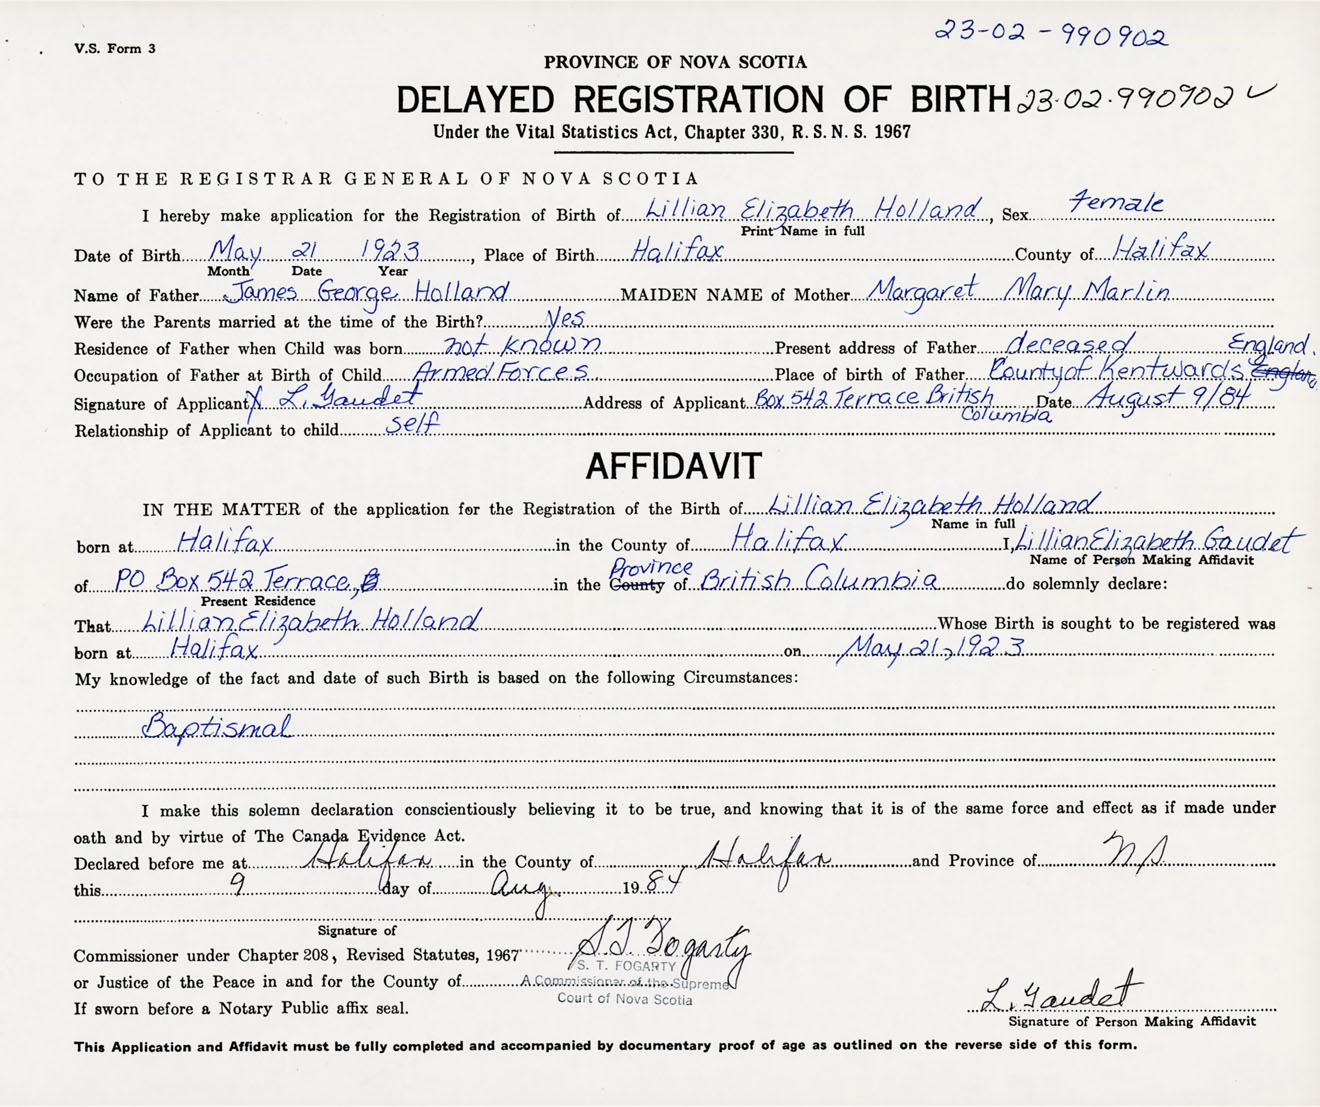 23-02-990902
V.S. Form 3
PROVINCE OF NOVA SCOTIA
DELAYED REGISTRATION OF BIRTH 23.02.990902
Under the Vital Statistics Act, Chapter 330, R. S. N. S. 1967
TO THE REGISTRAR GENERAL OF NOVA SCOTIA
I hereby make application for the Registration of Birth of Lillian Elizabeth Holland, Sex Female
Print Name in full
Date of Birth May 21 1923, Place of Birth Halifax County of Halifax
Month Date Year
Name of Father James George Holland MAIDEN NAME of Mother Margaret Mary Marlin
Were the Parents married at the time of the Birth? Yes
Residence of Father when Child was born not known Present address of Father deceased England.
Occupation of Father at Birth of Child Armed Forces Place of birth of Father County of Kentwards England
Signature of Applicant X L. Gaudet Address of Applicant Box 542 Terrace British Date August 9/84
Columbia
Relationship of Applicant to child self
AFFIDAVIT
IN THE MATTER of the application for the Registration of the Birth of Lillian Elizabeth Holland
Name in full
born at Halifax in the County of Halifax I, Lillian Elizabeth Gaudet
Name of Person Making Affidavit
Province
of PO Box 542 Terrace, B in the County of British Columbia do solemnly declare:
Present Residence
That Lillian Elizabeth Holland Whose Birth is sought to be registered was
born at Halifax on May 21, 1923
My knowledge of the fact and date of such Birth is based on the following Circumstances:
Baptismal
I make this solemn declaration conscientiously believing it to be true, and knowing that it is of the same force and effect as if made under
oath and by virtue of The Canada Evidence Act.
Declared before me at Halifax in the County of Halifax and Province of N.S.
this 9 day of Aug. 1984
Signature of
Commissioner under Chapter 208, Revised Statutes, 1967 S.T. Fogarty
S. T. FOGARTY
or Justice of the Peace in and for the County of A Commissioner of the Supreme
Court of Nova Scotia
If sworn before a Notary Public affix seal.
L. Gaudet
Signature of Person Making Affidavit
This Application and Affidavit must be fully completed and accompanied by documentary proof of age as outlined on the reverse side of this form.